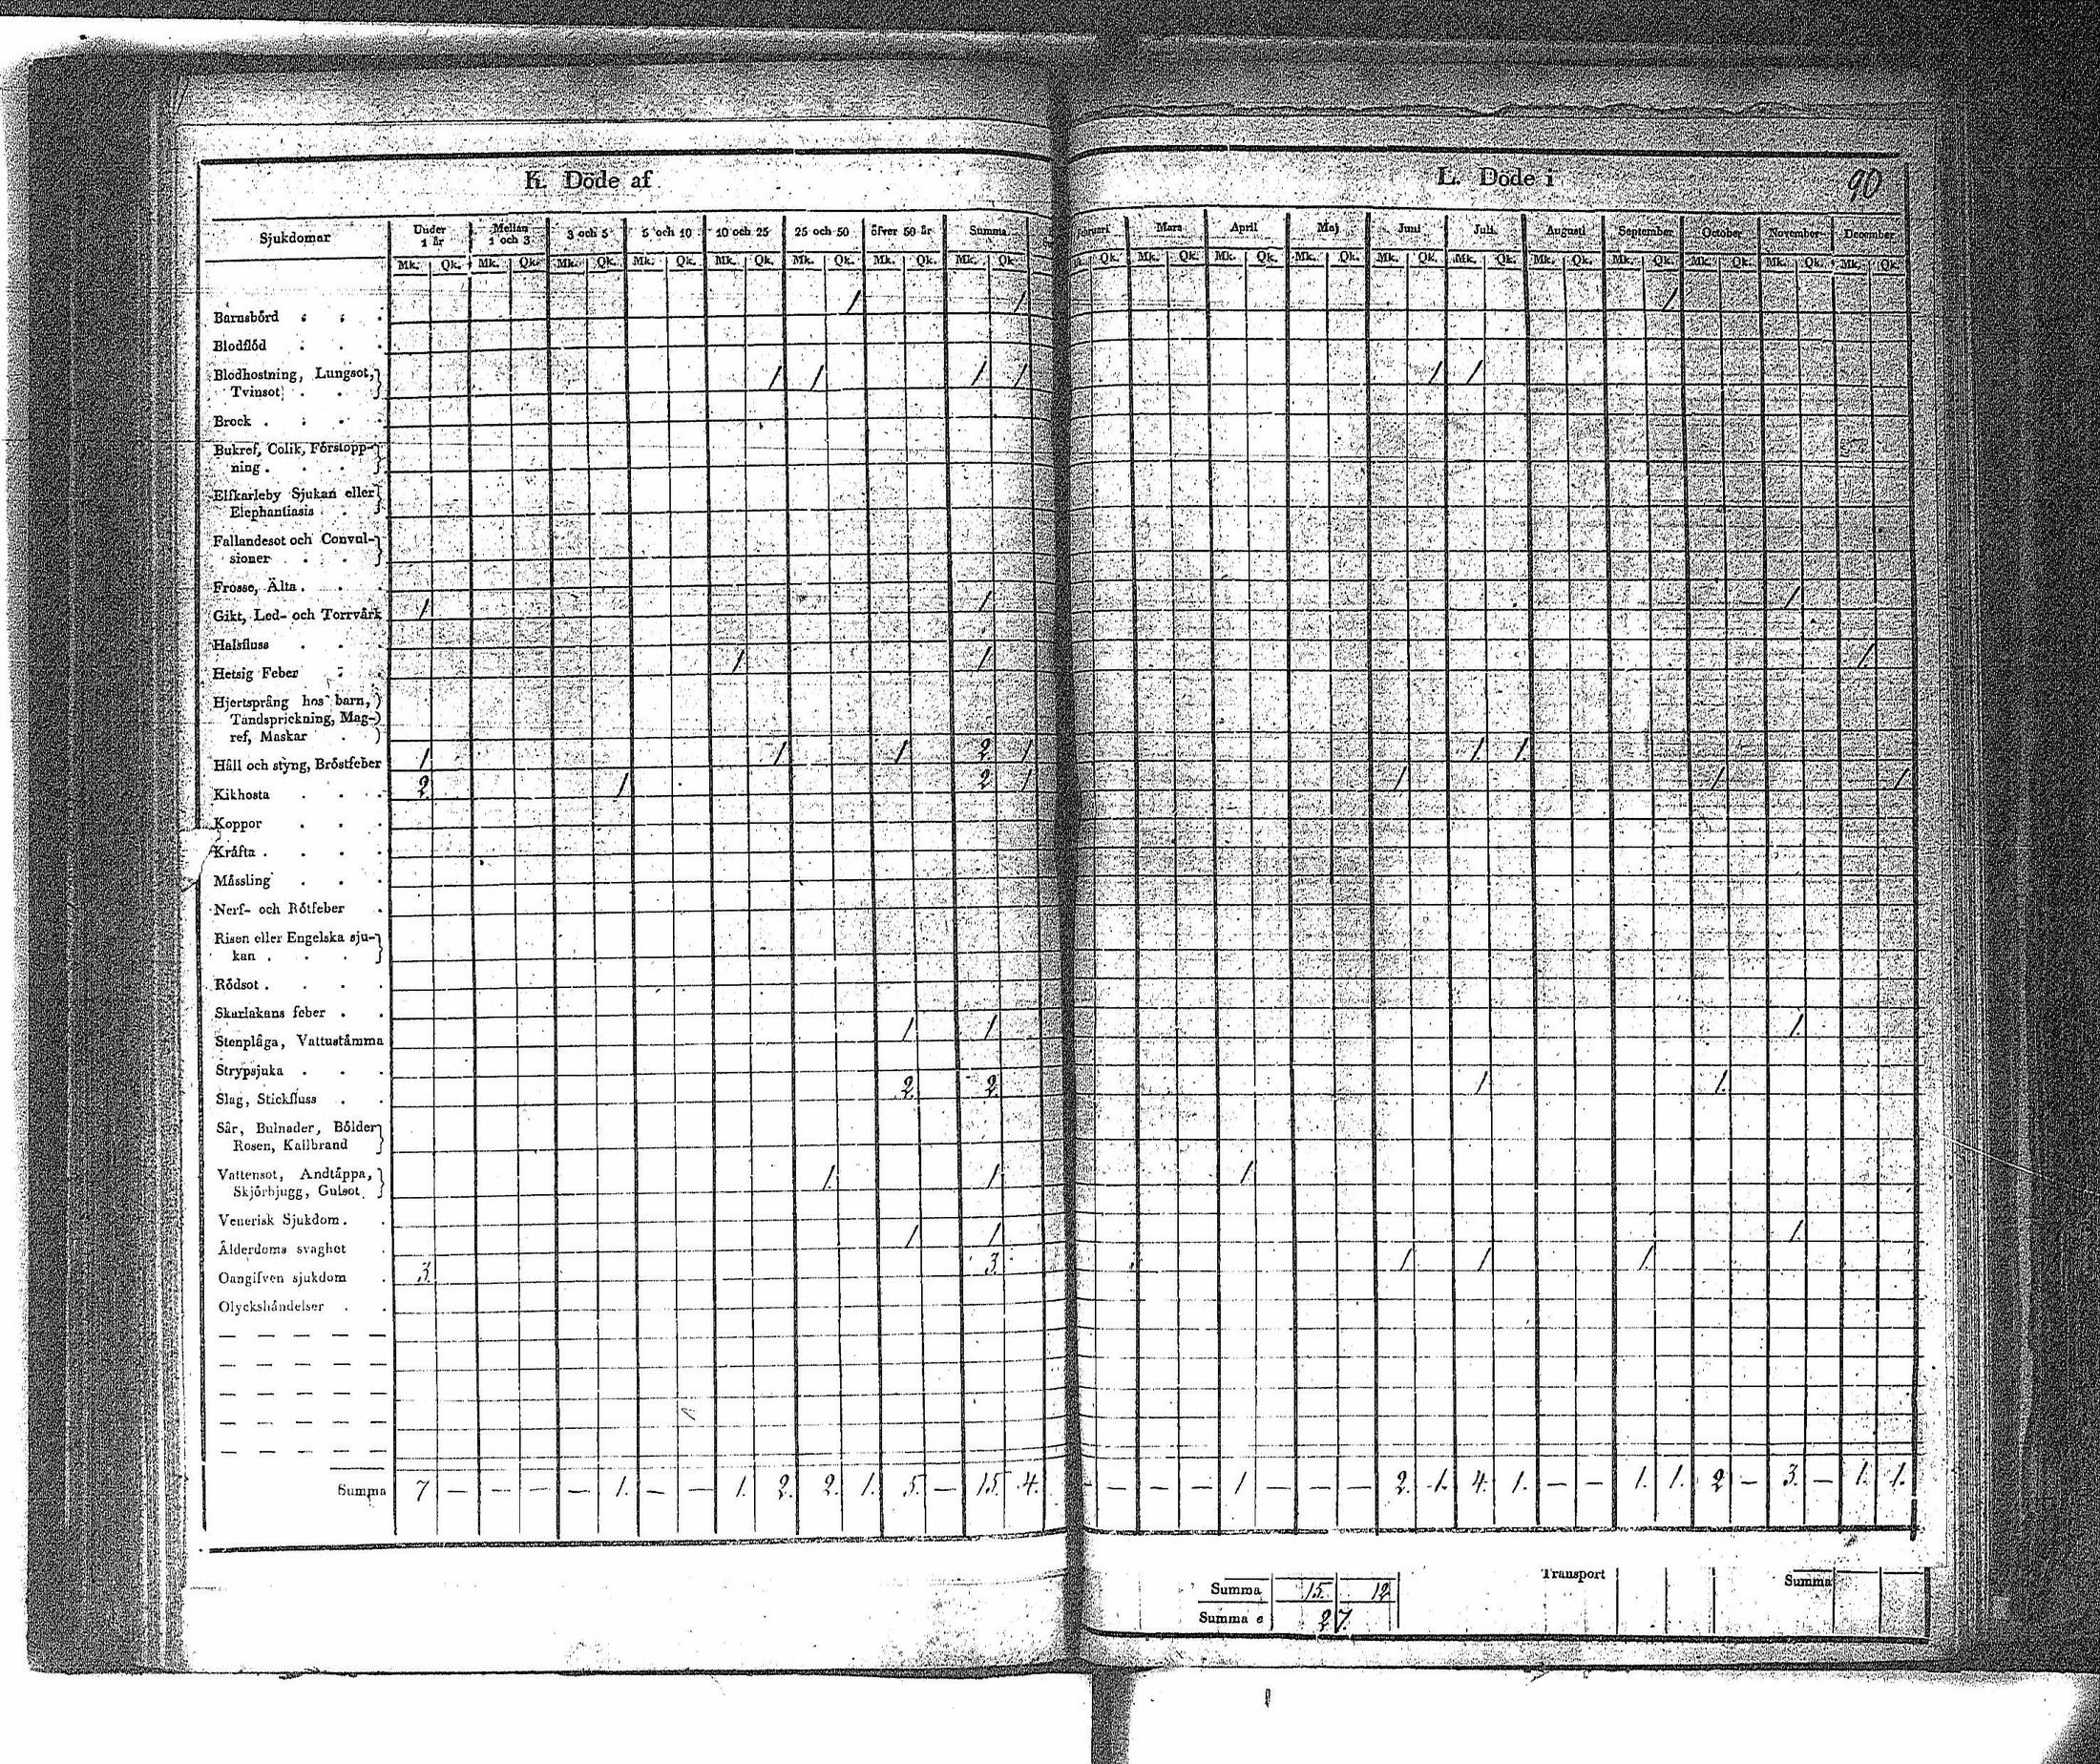 K. Döde af
L. Döde i
90
Sjukdomar Under 1 år Mellan 1 och 3 3 och 5 5 och 10 10 och 25 25 och 50 öfver 50 år Summa Februari Mars April Maj Juni Juli Augusti September October November December
Mk. Qk. Mk. Qk. Mk. Qk. Mk. Qk. Mk. Qk. Mk. Qk. Mk. Qk. Mk. Qk. Qk. Mk. Qk. Mk. Qk. Mk. Qk. Mk. Qk. Mk. Qk. Mk. Qk. Mk. Qk. Mk. Qk. Mk. Qk. Mk. Qk.
Barnsbörd 1 1 1
Blodflöd
Blodhostning, Lungsot,
Tvinsot 1 1 1 1 1 1
Brock
Bukref, Colik, Förstopp-
ning
Elfkarleby Sjukan eller
Elephantiasis
Fallandesot och Convul-
sioner
Frosse, Älta
Gikt, Led- och Torrvärk 1 1 1
Halsfluss
Hetsig Feber 1 1 1
Hjertsprång hos barn,
Tandsprickning, Mag-
ref, Maskar
Håll och styng, Bröstfeber 1 1 1 2 1 1 1
Kikhosta 2 1 2 1 1 1 1
Koppor
Kräfta
Mässling
Nerf- och Rötfeber
Risen eller Engelska sju-
kan
Rödsot
Skarlakans feber
Stenplåga, Vattustämma 1 1 1
Strypsjuka
Slag, Stickfluss 2 2 1 1
Sår, Bulnader, Bölder
Rosen, Kallbrand
Vattensot, Andtäppa,
Skjörbjugg, Gulsot 1 1 1
Venerisk Sjukdom
Ålderdoms svaghet 1 1 1
Oangifven sjukdom 3 3 1 1 1
Olyckshändelser
Summa 7 — — — — 1. — — 1. 2. 2. 1. 5. — 15. 4. — — — 1 — — — 2. 1. 4. 1. — — 1. 1. 2 — 3. — 1. 1.
Summa 15. 12
Transport
Summa
Summa s 27.